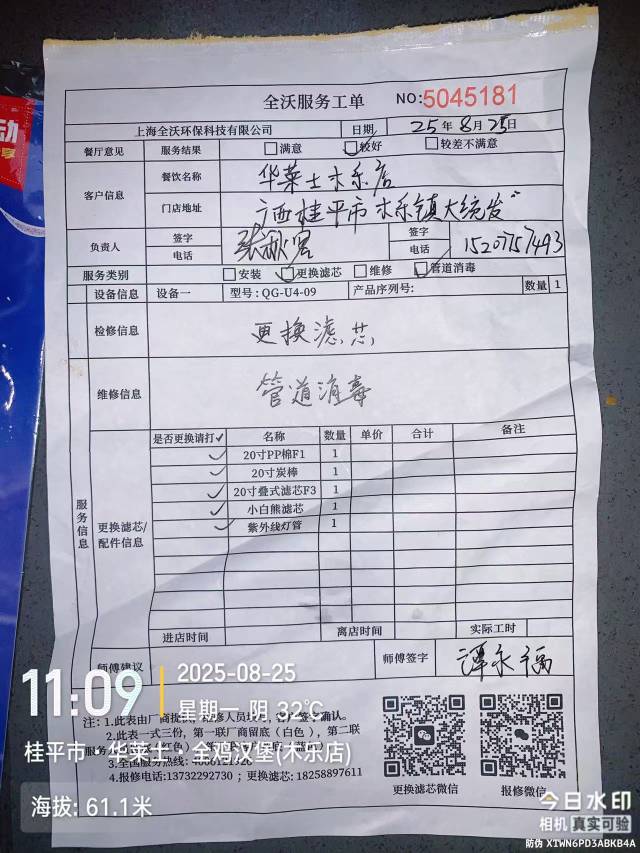 全沃服务工单 NO:5045181
上海全沃环保科技有限公司 日期 25年8月25日
餐厅意见 服务结果 满意 较好 较差不满意
客户信息 餐饮名称 华莱士木乐店
门店地址 广西桂平市木乐镇大统发
负责人 签字 电话 签字 电话 15207757493
服务类别 安装 更换滤芯 维修 管道消毒
设备信息 设备一 型号:QG-U4-09 产品序列号: 数量 1
检修信息 更换滤芯
维修信息 管道消毒
服务信息
更换滤芯/配件信息
是否更换请打✓ 名称 数量 单价 合计 备注
✓ 20寸PP棉F1 1
✓ 20寸炭棒 1
✓ 20寸叠式滤芯F3 1
✓ 小白熊滤芯 1
✓ 紫外线灯管 1
进店时间 离店时间 实际工时
师傅建议 师傅签字 谭永福
注: 1.此表由厂商
2.此表一式三份，第一联厂商留底(白色)，第二联
3.全国服务热线:
4.报修电话:13732292730；更换滤芯: 18258897611
更换滤芯微信 报修微信
11:09 2025-08-25
星期一 阴 32℃
桂平市·华莱士·全鸡汉堡(木乐店)
海拔: 61.1米
今日水印
相机 真实可验
防伪 XTWN6PD3ABKB4A